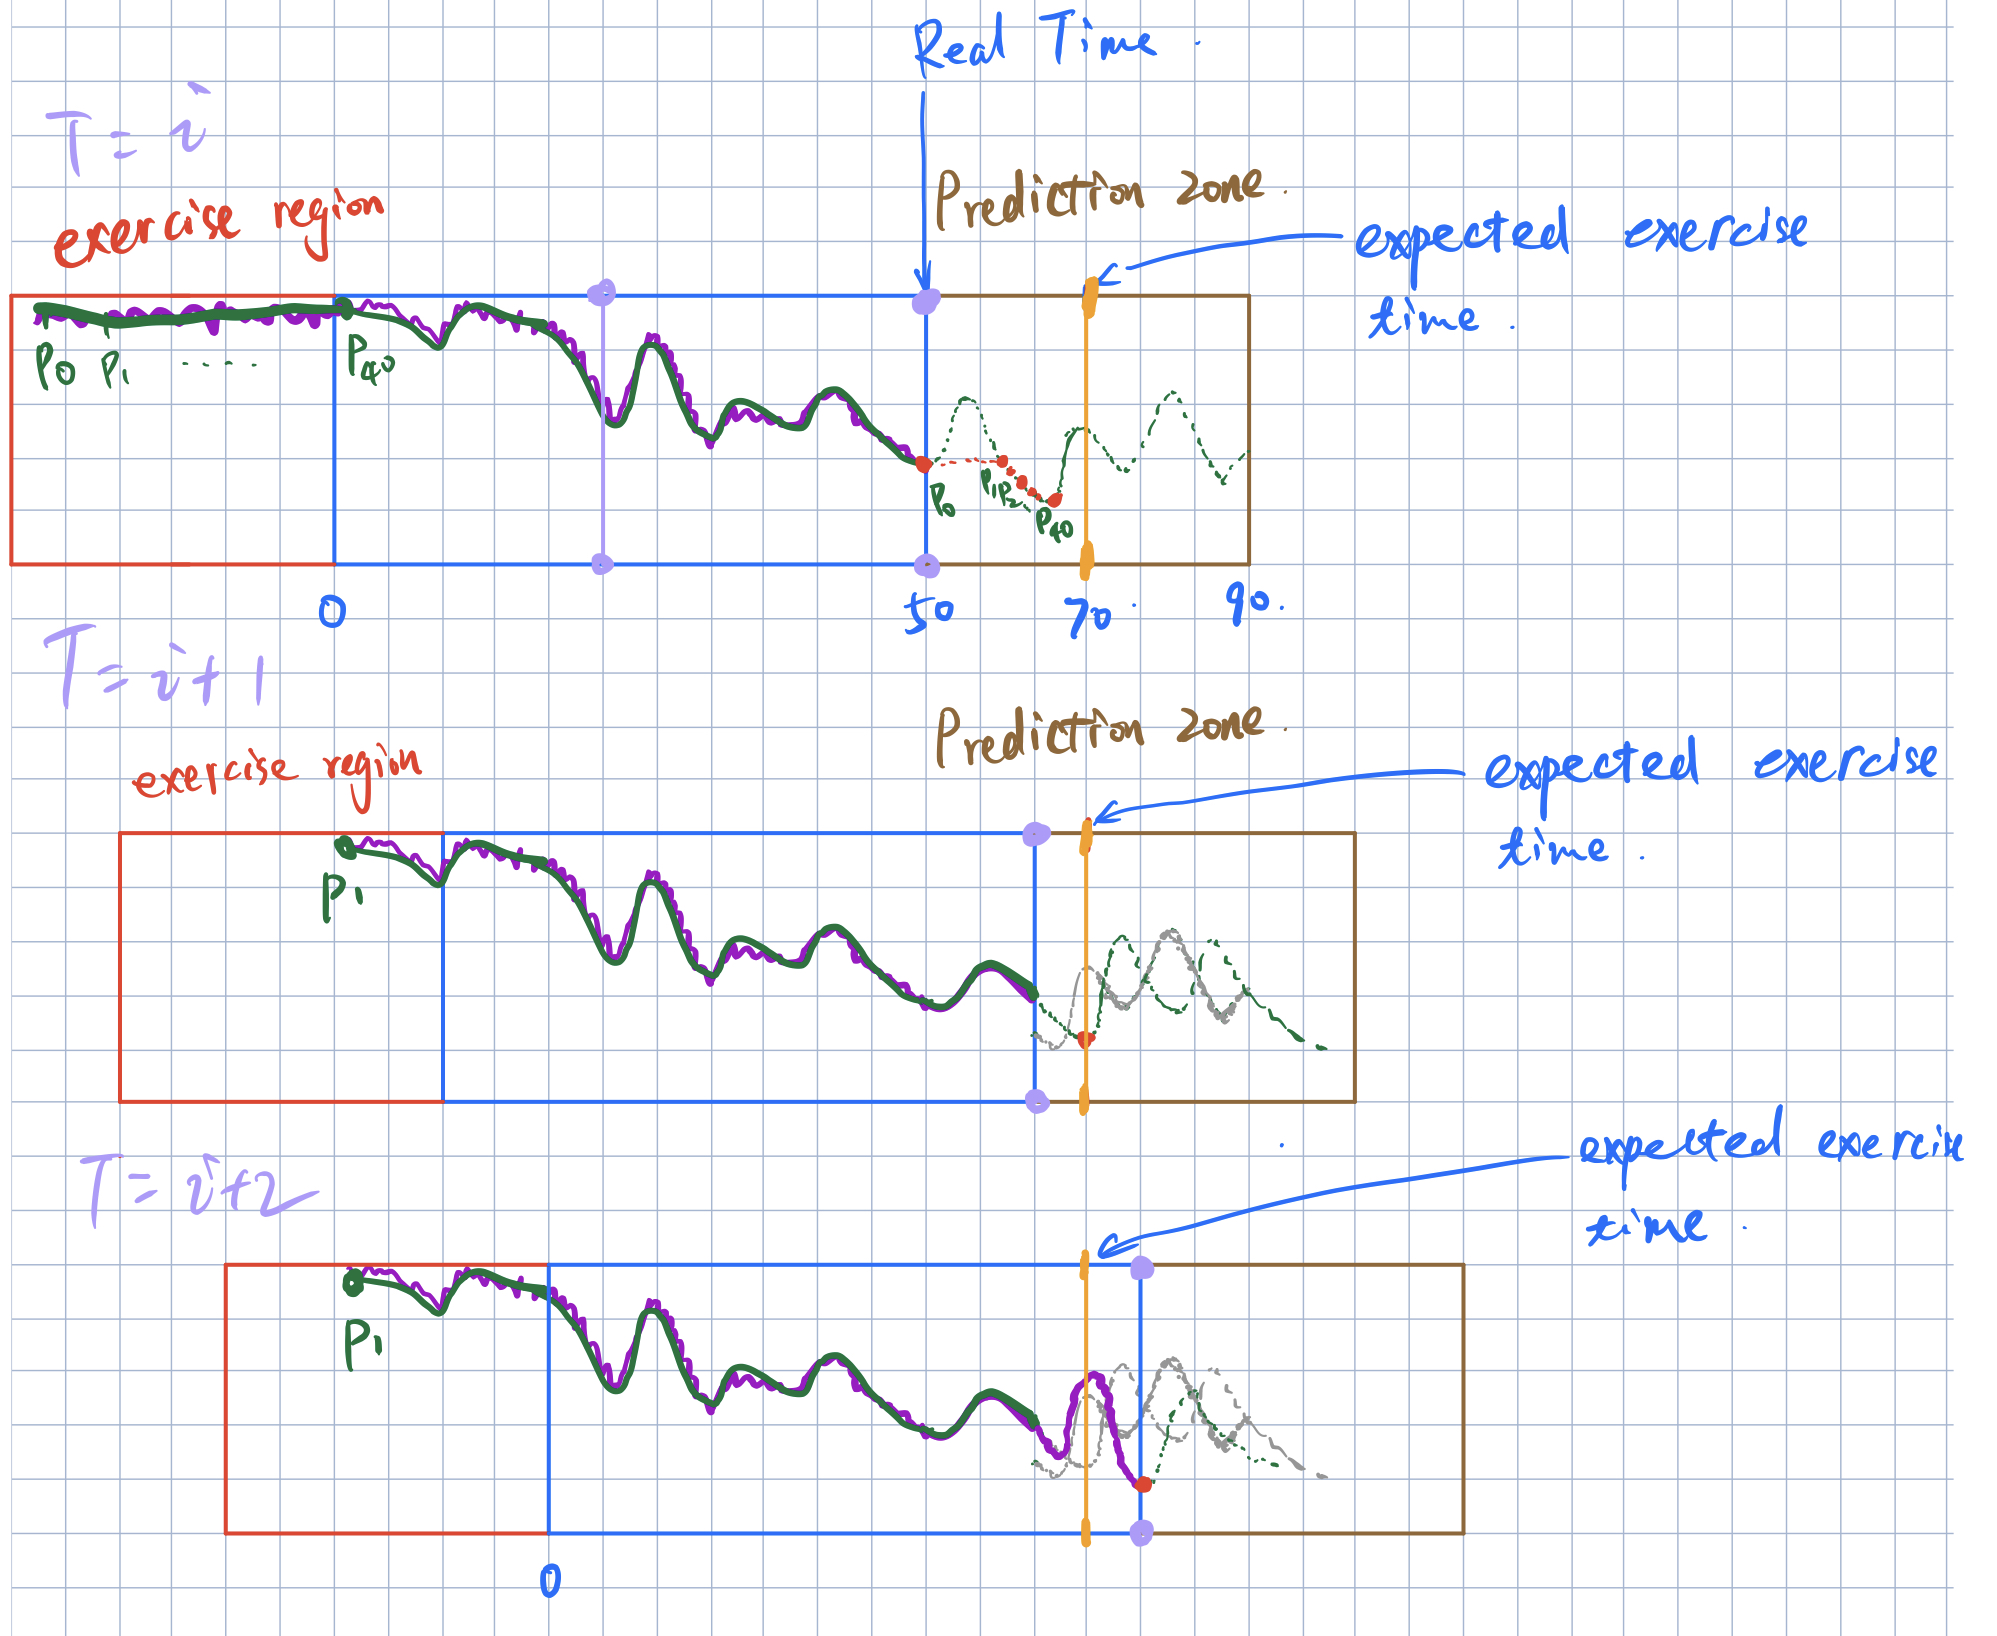 Real Time .
T = i
Prediction zone .
exercise region
expected exercise
time .
P0 P1 ---- P40
P0 P1 P2 P40
0 50 70 90 .
T = i+1
Prediction zone .
exercise region
expected exercise
time .
P1
T = i+2
expected exercise
time .
P1
0